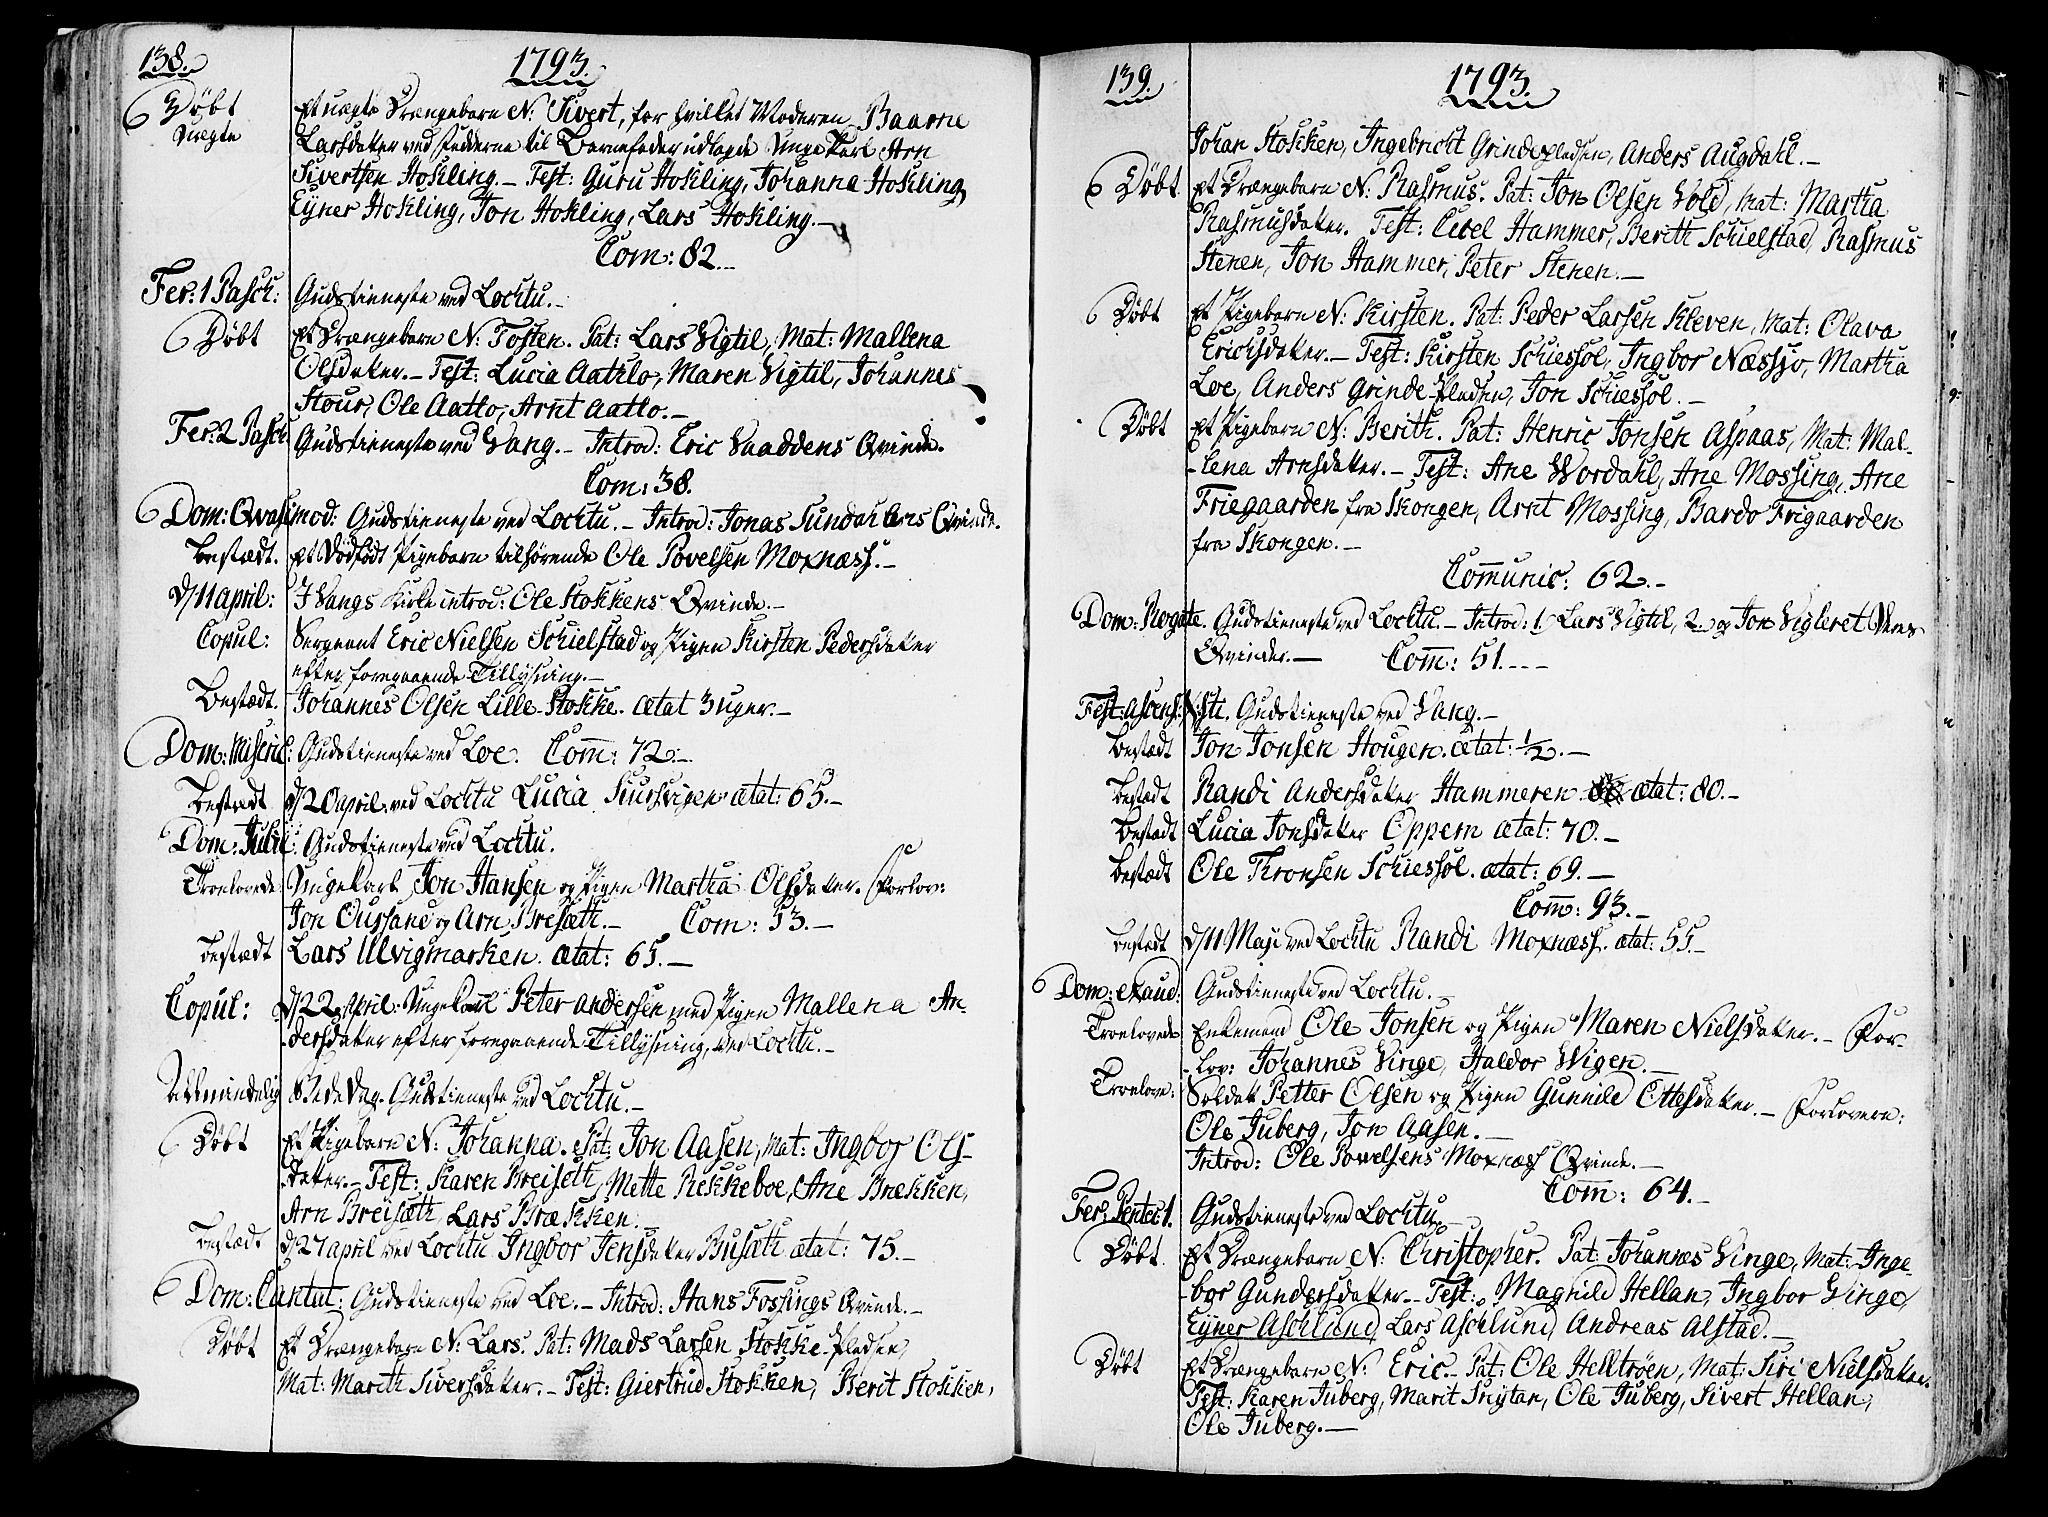 138.
1793.
Døbt Et uægte Drængebarn N: Sivert, for hvilket Moderen Baarne
Uægte Larsdatter ved fadderne til Barnefader udlagde Unge Karl Arn
Sivertsen Hokling. – Test: Guru Hokling, Johanna Hokling,
Eyner Hokling, Jon Hokling, Lars Hokling. –
Com: 82.
Fer: 1 Pasch: Gudstieneste ved Lochtu. –
Døbt Et Drængebarn N: Tosten. Pat: Lars Vigtil, Mat: Mallena
Olsdater. – Test: Lucia Aatlo, Maren Vigtil, Johannes
Stour, Ole Aatlo, Arnt Aatlo. –
Fer: 2 Pasch Gudstieneste ved Vang. – Introd: Eric Vaaddens Qvinde.
Com: 38.
Dom: Qvasimod: Gudstieneste ved Lochtu. – Introd: Jonas Sundahlens Qvinde.
Bestædt. Et Dødfødt Pigebarn tilhørende Ole Povelsen Moxnæss. –
d/11 april: I Vangs Kirke introd: Ole Stokkens Qvinde. –
Copul: Sergeant Eric Nielsen Schielstad og Pigen Kirsten Pedersdater
efter foregaaende Tillysning. –
Bestædt. Johannes Olsen Lille-Stokke. ætat 3 uger. –
Dom: Miseric: Gudstieneste ved Loe. Com: 72. –
Bestædt d/20 april ved Lochtu Lucia Stursvigen ætat: 65. –
Dom: Jubil: Gudstieneste ved Lochtu.
Troelovede Ungekarl Jon Hansen og Pigen Martha Olsdater. Forlov:
Jon Oussand og Arn Bresæth. – Com: 53. –
Bestædt Lars Ulvigmarken. ætat: 65. –
Copul: d/22 April. Ungekarl Peter Andersen med Pigen Mallena An-
-dersdater efter foregaaende Tillysning, ved Lochtu. –
Allmindelig Bededag. Gudstieneste ved Lochtu. –
Døbt Et Pigebarn N: Johanna. Pat: Jon Aasen, Mat: Ingbor Ols-
-dater. – Test: Karen Breiseth, Mette Rekkeboe, Ane Brækken,
Arn Breisæth, Lars Brækken. –
Bestædt d/27 april ved Lochtu Ingbor Jensdater Busæth ætat: 75. –
Dom: Cantat: Gudstieneste ved Loe. – Introd: Hans Fossings Qvinde. –
Døbt Et Drængebarn N: Lars. Pat: Mads Larsen Stokke-Pladsen,
Mat: Marith Siversdater. – Test: Giertrud Stokken, Berit Stokken,
139.
1793.
Johan Stokken, Ingebricht Grindepladsen, Anders Augdahl. –
Døbt Et Drængebarn N: Rasmus. Pat: Jon Olsen Vold, Mat: Martha
Rasmusdater. Test: Cicel Hammer, Berith Schielstad, Rasmus
Stenen, Jon Hammer, Peter Stenen. –
Døbt Et Pigebarn N: Kirsten. Pat: Peder Larsen Kleven, Mat: Olava
Ericksdater. – Test: Kirsten Schiessol, Ingbor Næssvo, Martha
Loe, Anders Grinde-Pladsen, Jon Schiessol. –
Døbt Et Pigebarn N: Berith. Pat: Henric Jonsen Aspaas, Mat: Mal-
-lena Arnsdater. – Test: Ane Wordahl, Ane Mossing, Ane
Friegaarden fra Skongen, Arnt Mossing, Bardo Frigaarden
fra Skongen. –
Communic: 62. –
Dom: Rogate. Gudstieneste ved Lochtu. – Introd: 1. Lars Vigtil, 2. og Jon Vigleret Deres
Qvinder. – Com: 51. –
Fest: Ascens: Xsti. Gudstieneste ved Vang. –
Bestædt Jon Jonsen Hougen. ætat: 1/2. –
Bestædt Randi Andersdater Hammeren ætat: 80. –
Bestædt Lucia Jonsdater Oppem ætat: 70. –
Bestædt Ole Thronsen Schiessol. ætat: 69. –
Com: 93. –
Bestædt d/11 Maji ved Lochtu Randi Moxnæss. ætat: 55. –
Dom: Exaud: Gudstieneste ved Lochtu. –
Troelovede Enkemand Ole Jonsen og Pigen Maren Nielsdater. – For-
-lov: Johannes Vinge, Haldor Wigen. –
Troelove: Soldat Petter Olsen og Pigen Gunnild Ottesdater. – Forlovere:
Ole Juberg, Jon Aasen. –
Introd: Ole Powelsens Moxnæss Qvinde. –
Com: 64. –
Fer: Pentec: 1. Gudstieneste ved Lochtu. –
Døbt Et Drængebarn N: Christopher. Pat: Johannes Vinge, Mat: Inge-
-bor Gundersdater. – Test: Maghild Hellan, Ingbor Vinge,
Eyner Aschlund, Lars Aschlund, Andreas Alstad. –
Døbt Et Drængebarn N: Eric. – Pat: Ole Helltrøen, Mat: Siri Nielsdater.
Test: Karen Juberg, Marit Snytan, Ole Juberg, Sivert Hellan,
Ole Juberg. –